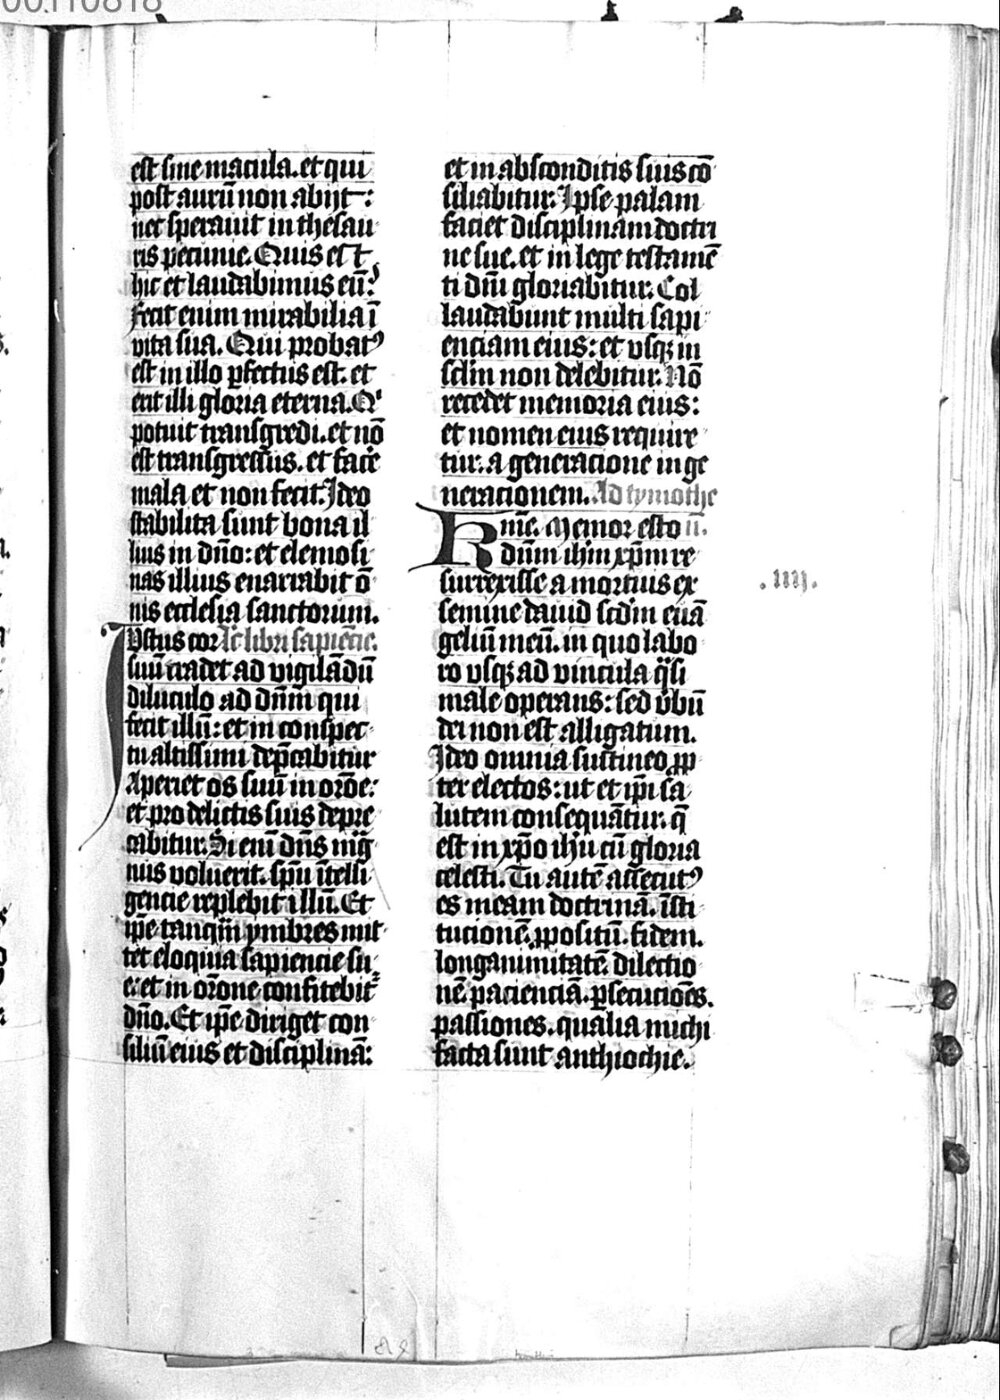 est sine macula. et qui
post aurū non abijt:
nec sperauit in thesau
ris pecunie. Quis est
hic et laudabimus eū?
fecit enim mirabilia ī
vita sua. Qui probatꝰ
est in illo ꝑfectus est. et
erit illi gloria eterna. Qͥ
potuit transgredi. et nō
est transgressus. et facē
mala et non fecit. Ideo
stabilita sunt bona il
lius in dn̄o: et elemosi
nas illius enarrabit ō
nis ecclesia sanctorum.
Iustus cor Ac libri sapiencie.
suū tradet ad vigilādū
diluculo ad dn̄m qui
fecit illū: et in conspec
tu altissimi dep̄cabitur
Aperiet os suū in orōe:
et pro delictis suis depre
cabitur. Si eni dn̄s mag
nus voluerit. spū ītelli
gencie replebit illū. Et
ip̄e tanqm̄ ymbres mit
tet eloquia sapiencie su
e: et in orōne confitebit᷑
dn̄o. Et ip̄e diriget con
siliū eius et disciplinā:
et in absconditis suis cō
siliabitur. Ipse palam
faciet disciplinam doctri
ne sue. et in lege testamē
ti dn̄i gloriabitur. Col
laudabunt multi sapi
enciam eius: et vsqꝫ in
sclm̄ non delebitur. Nō
recedet memoria eius:
et nomen eius require
tur. a generacione in ge
neracionem. Ad tymothe
Krm̄e. Memor esto ii.
dn̄m ihm̄ xp̄m re
surrexisse a mortuis ex
.iiij.
semine dauid scdm̄ euā
geliū meū. in quo labo
ro vsqꝫ ad vincula q̄si
male operans: sed v̄bū
dei non est alligatum.
Ideo omnia sustineo ꝓp
ter electos: ut et ip̄i sa
lutem consequātur. q̄
est in xp̄o ihū cū gloria
celesti. Tu autē assecutꝰ
es meam doctrinā. īsti
tucionē. ꝓpositū. fidem.
longanimitatē. dilectio
nē. pacienciā. ꝑsecuciōes.
passiones. qualia michi
facta sunt anthiochie.